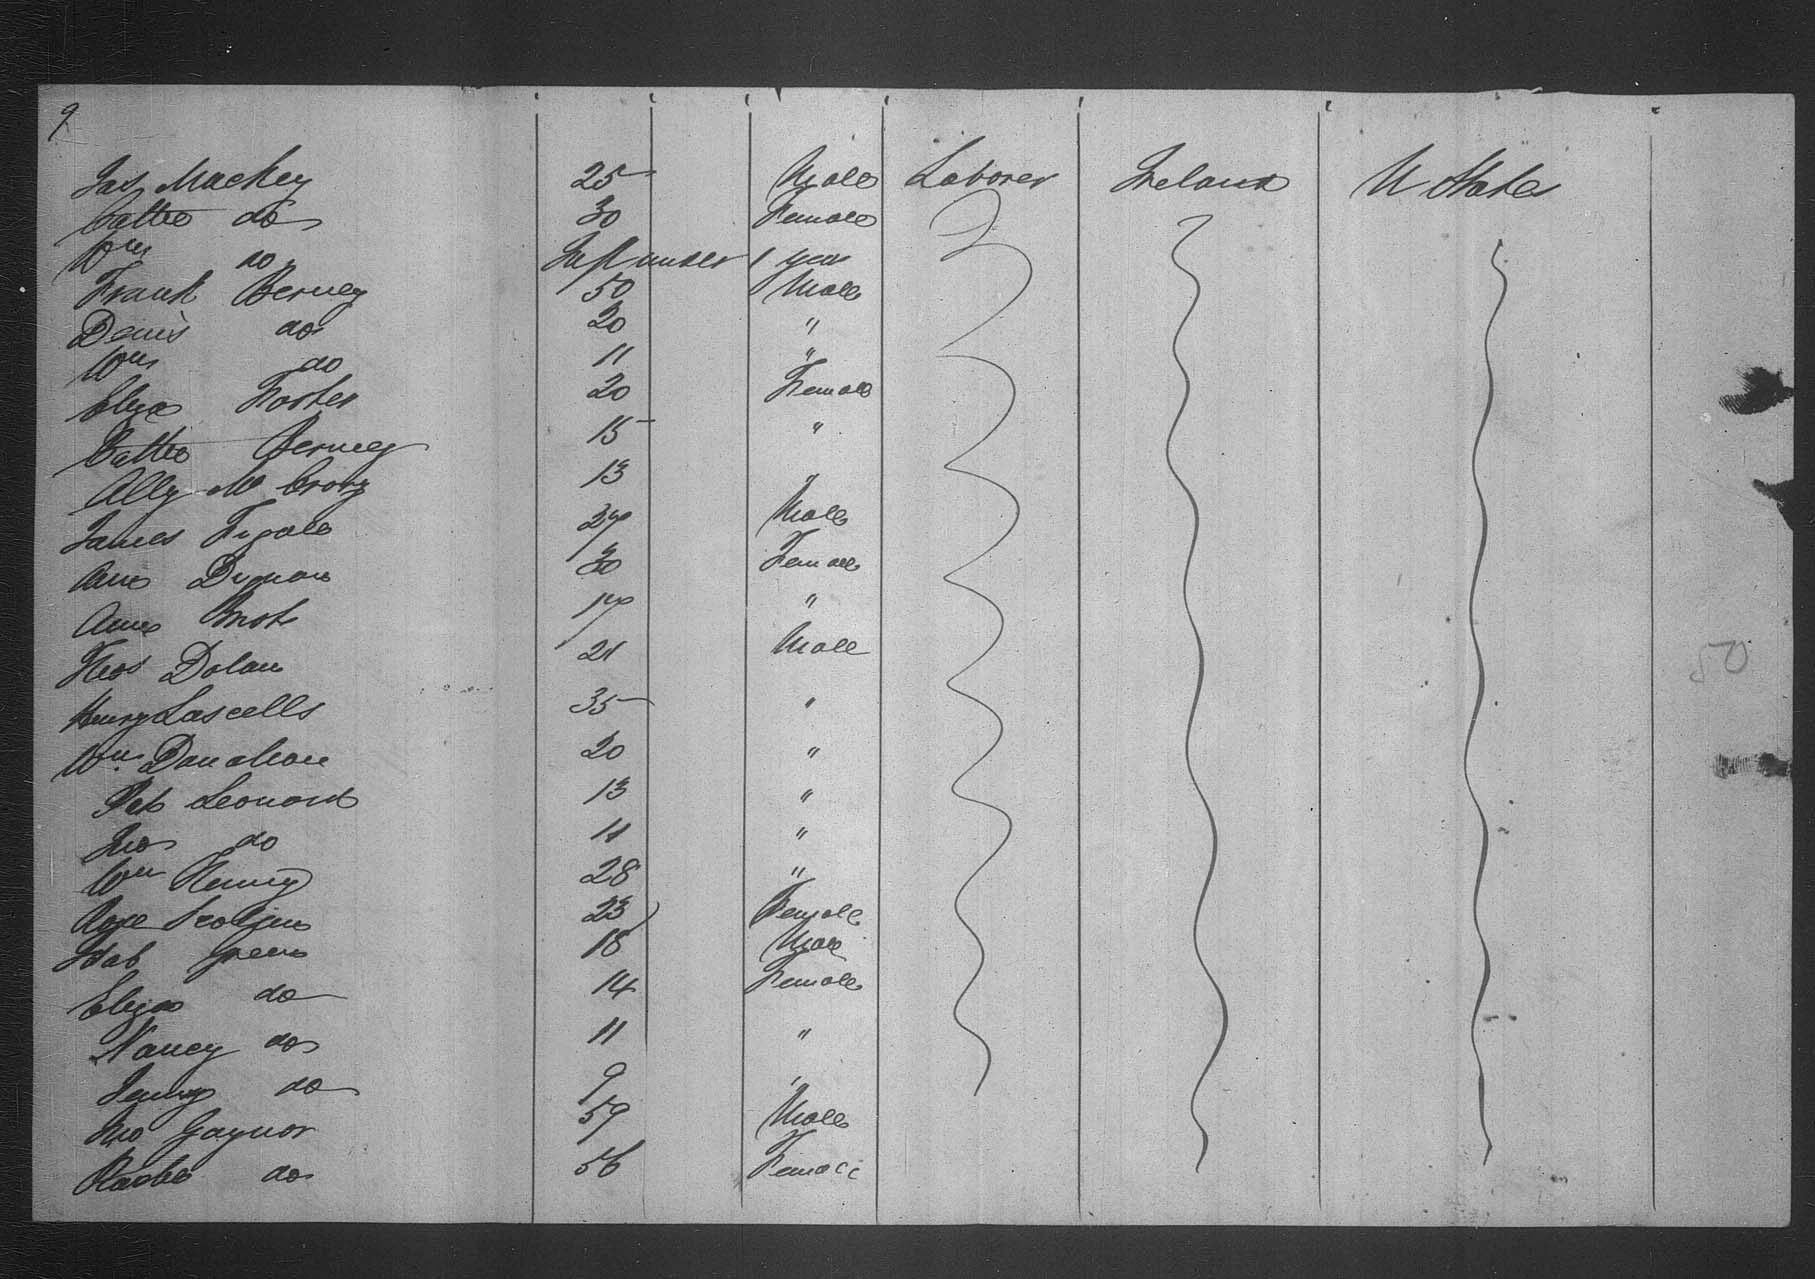 9
Jas Mackey 25 Male Laborer Ireland U States
Cathe do 30 Female
Wm do Inft under 1 year
Frank Berney 50 Male
Denis do 20 "
Wm do 11 "
Eliza Foster 20 Female
Cathe Berney 15 "
Ally Mc Crory 13 "
James 27 Male
Ann Dignan 30 Female
Anne 17 "
Thos Dolan 21 Male
Henry Lascells 35 "
Wm Danahoe 20 "
Pat Leonard 13 "
Jno do 11 "
Wm Henry 28 "
Rose 23 Female
Isab Green 18 Male
Eliza do 14 Female
Nancy do 11 "
Jenny do 9 "
Jno Gaynor 59 Male
do 56 Female
50